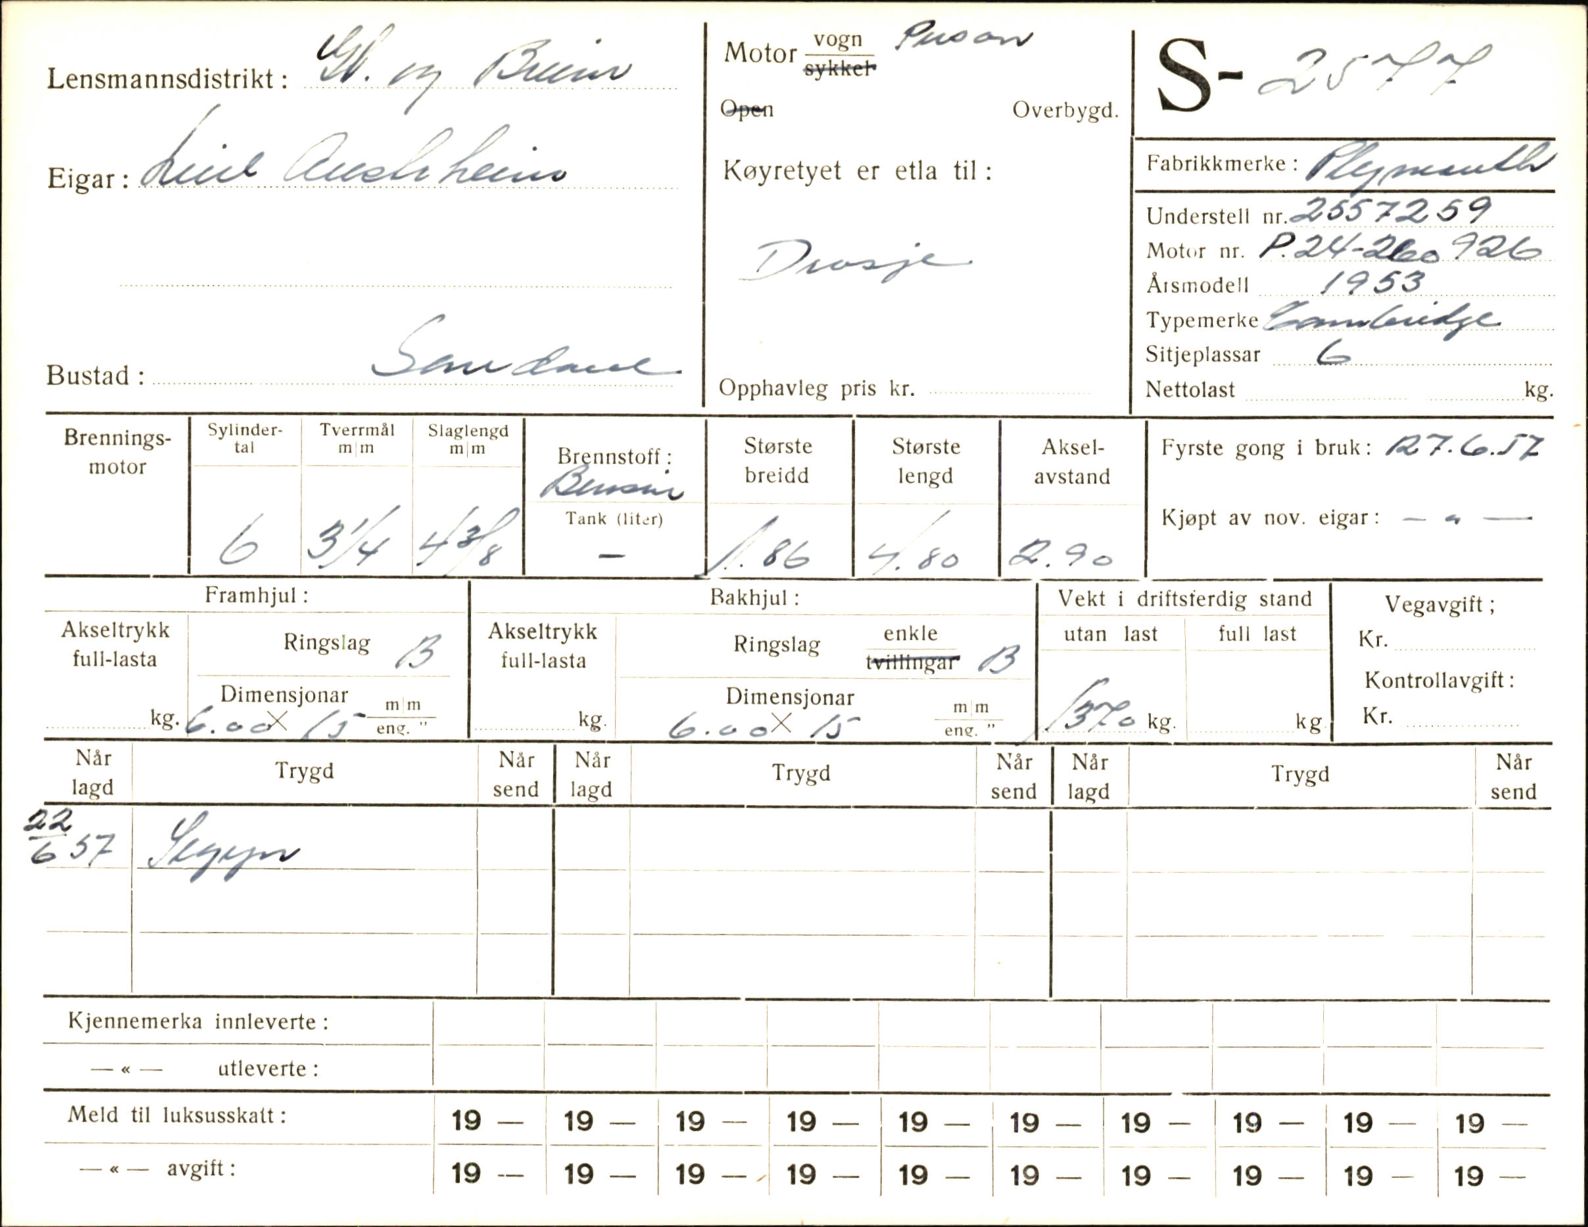 Lensmannsdistrikt: Gl. og Breim
Eigar: Emil Austrheim
Bustad: Sandane
Motor vogn Person
sykkel
Open Overbygd.
Køyretyet er etla til:
Drosje
Opphavleg pris kr.
S- 2577
Fabrikkmerke: Plymouth
Understell nr. 2557259
Motor nr. P.24-260926
Årsmodell 1953
Typemerke Cambridge
Sitjeplassar 6
Nettolast kg.
Brennings-motor
Sylinder-tal 6
Tverrmål m|m 3 1/4
Slaglengd m|m 4 3/8
Brennstoff: Bensin
Tank (liter) —
Største breidd 1.86
Største lengd 4.80
Aksel-avstand 2.90
Fyrste gong i bruk: 27.6.57
Kjøpt av nov. eigar: — " —
Framhjul:
Akseltrykk full-lasta kg.
Ringslag B
Dimensjonar m|m eng. " 6.00 X 15
Bakhjul:
Akseltrykk full-lasta kg.
Ringslag enkle tvillingar B
Dimensjonar m|m eng. " 6.00 X 15
Vekt i driftsferdig stand
utan last 1370 kg.
full last kg
Vegavgift;
Kr.
Kontrollavgift:
Kr.
Når lagd Trygd Når send Når lagd Trygd Når send Når lagd Trygd Når send
22/6 57
Kjennemerka innleverte:
— « — utleverte:
Meld til luksusskatt: 19 — 19 — 19 — 19 — 19 — 19 — 19 — 19 — 19 — 19 —
— « — avgift: 19 — 19 — 19 — 19 — 19 — 19 — 19 — 19 — 19 — 19 —